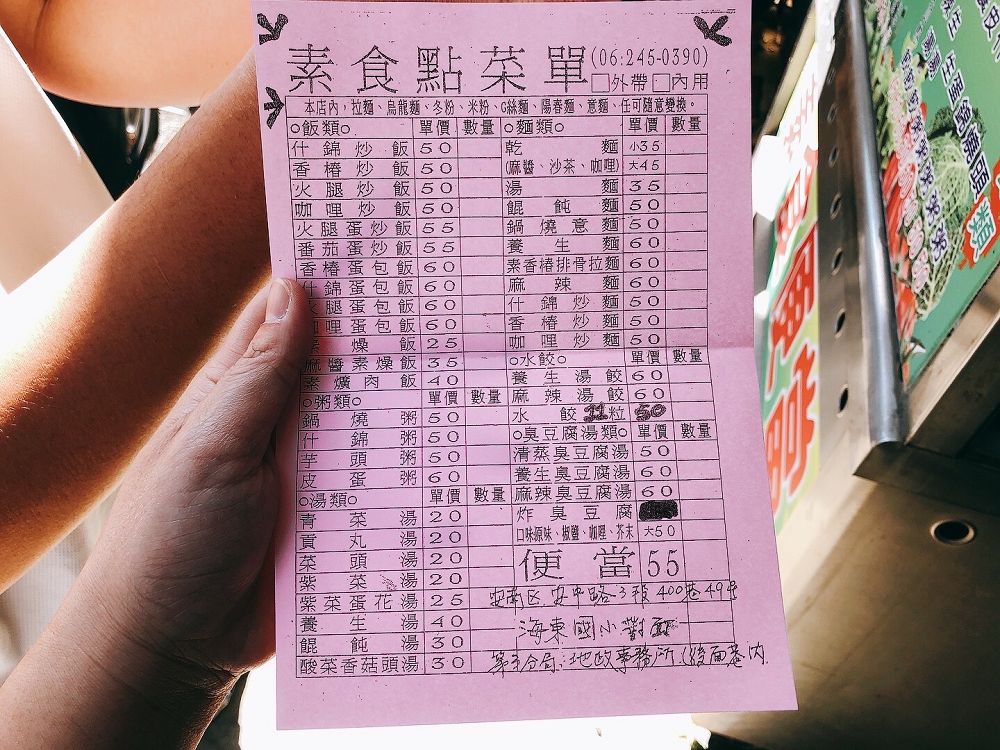 素食點菜單(06:245-0390)
□外帶□內用
本店內，拉麵、烏龍麵、冬粉、米粉、G絲麵、陽春麵、意麵、任可隨意變換。
○飯類○ 單價 數量
什錦炒飯 50
香椿炒飯 50
火腿炒飯 50
咖哩炒飯 50
火腿蛋炒飯 55
番茄蛋炒飯 55
香椿蛋包飯 60
什錦蛋包飯 60
火腿蛋包飯 60
咖哩蛋包飯 60
素燥飯 25
麻醬素燥飯 35
素爌肉飯 40
○粥類○ 單價 數量
鍋燒粥 50
什錦粥 50
芋頭粥 50
皮蛋粥 60
○湯類○ 單價 數量
青菜湯 20
貢丸湯 20
菜頭湯 20
紫菜湯 20
紫菜蛋花湯 25
養生湯 40
餛飩湯 30
酸菜香菇頭湯 30
○麵類○ 單價 數量
乾麵 小35
(麻醬、沙茶、咖哩) 大45
湯麵 35
餛飩麵 50
鍋燒意麵 50
養生麵 60
素香椿排骨拉麵 60
麻辣麵 60
什錦炒麵 50
香椿炒麵 50
咖哩炒麵 50
○水餃○ 單價 數量
養生湯餃 60
麻辣湯餃 60
水餃11粒 50
○臭豆腐湯類○ 單價 數量
清蒸臭豆腐湯 50
養生臭豆腐湯 60
麻辣臭豆腐湯 60
炸臭豆腐
口味原味、椒鹽、咖哩、芥末 大50
便當 55
安南区.安中路.3段400巷49号
海東國小對面
第3分局.地政事務所(後面巷內